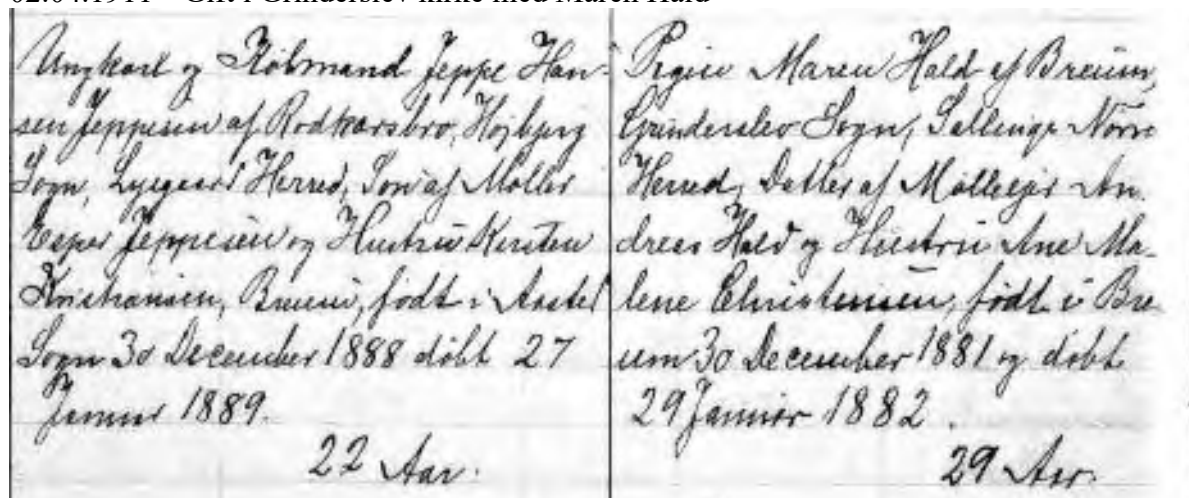 02.04.1911 – Gift i Grinderslev kirke med Maren Hald
Ungkarl og Købmand Jeppe Han-
sen Jeppesen af Rødkærsbro, Højbjerg
Sogn, Lysgaard Herred, Søn af Møller
Esper Jeppesen og Hustru Kirsten
Kristiansen, Breum, født i Aasted
Sogn 30 December 1888 døbt 27
Januar 1889.
22 Aar.
Pigen Maren Hald af Breum,
Grinderslev Sogn, Sallings Nørre
Herred, Datter af Mølleejer An-
dreas Hald og Hustru Ane Ma-
lene Christensen, født i Bre-
um 30 December 1881 og døbt
29 Januar 1882.
29 Aar.